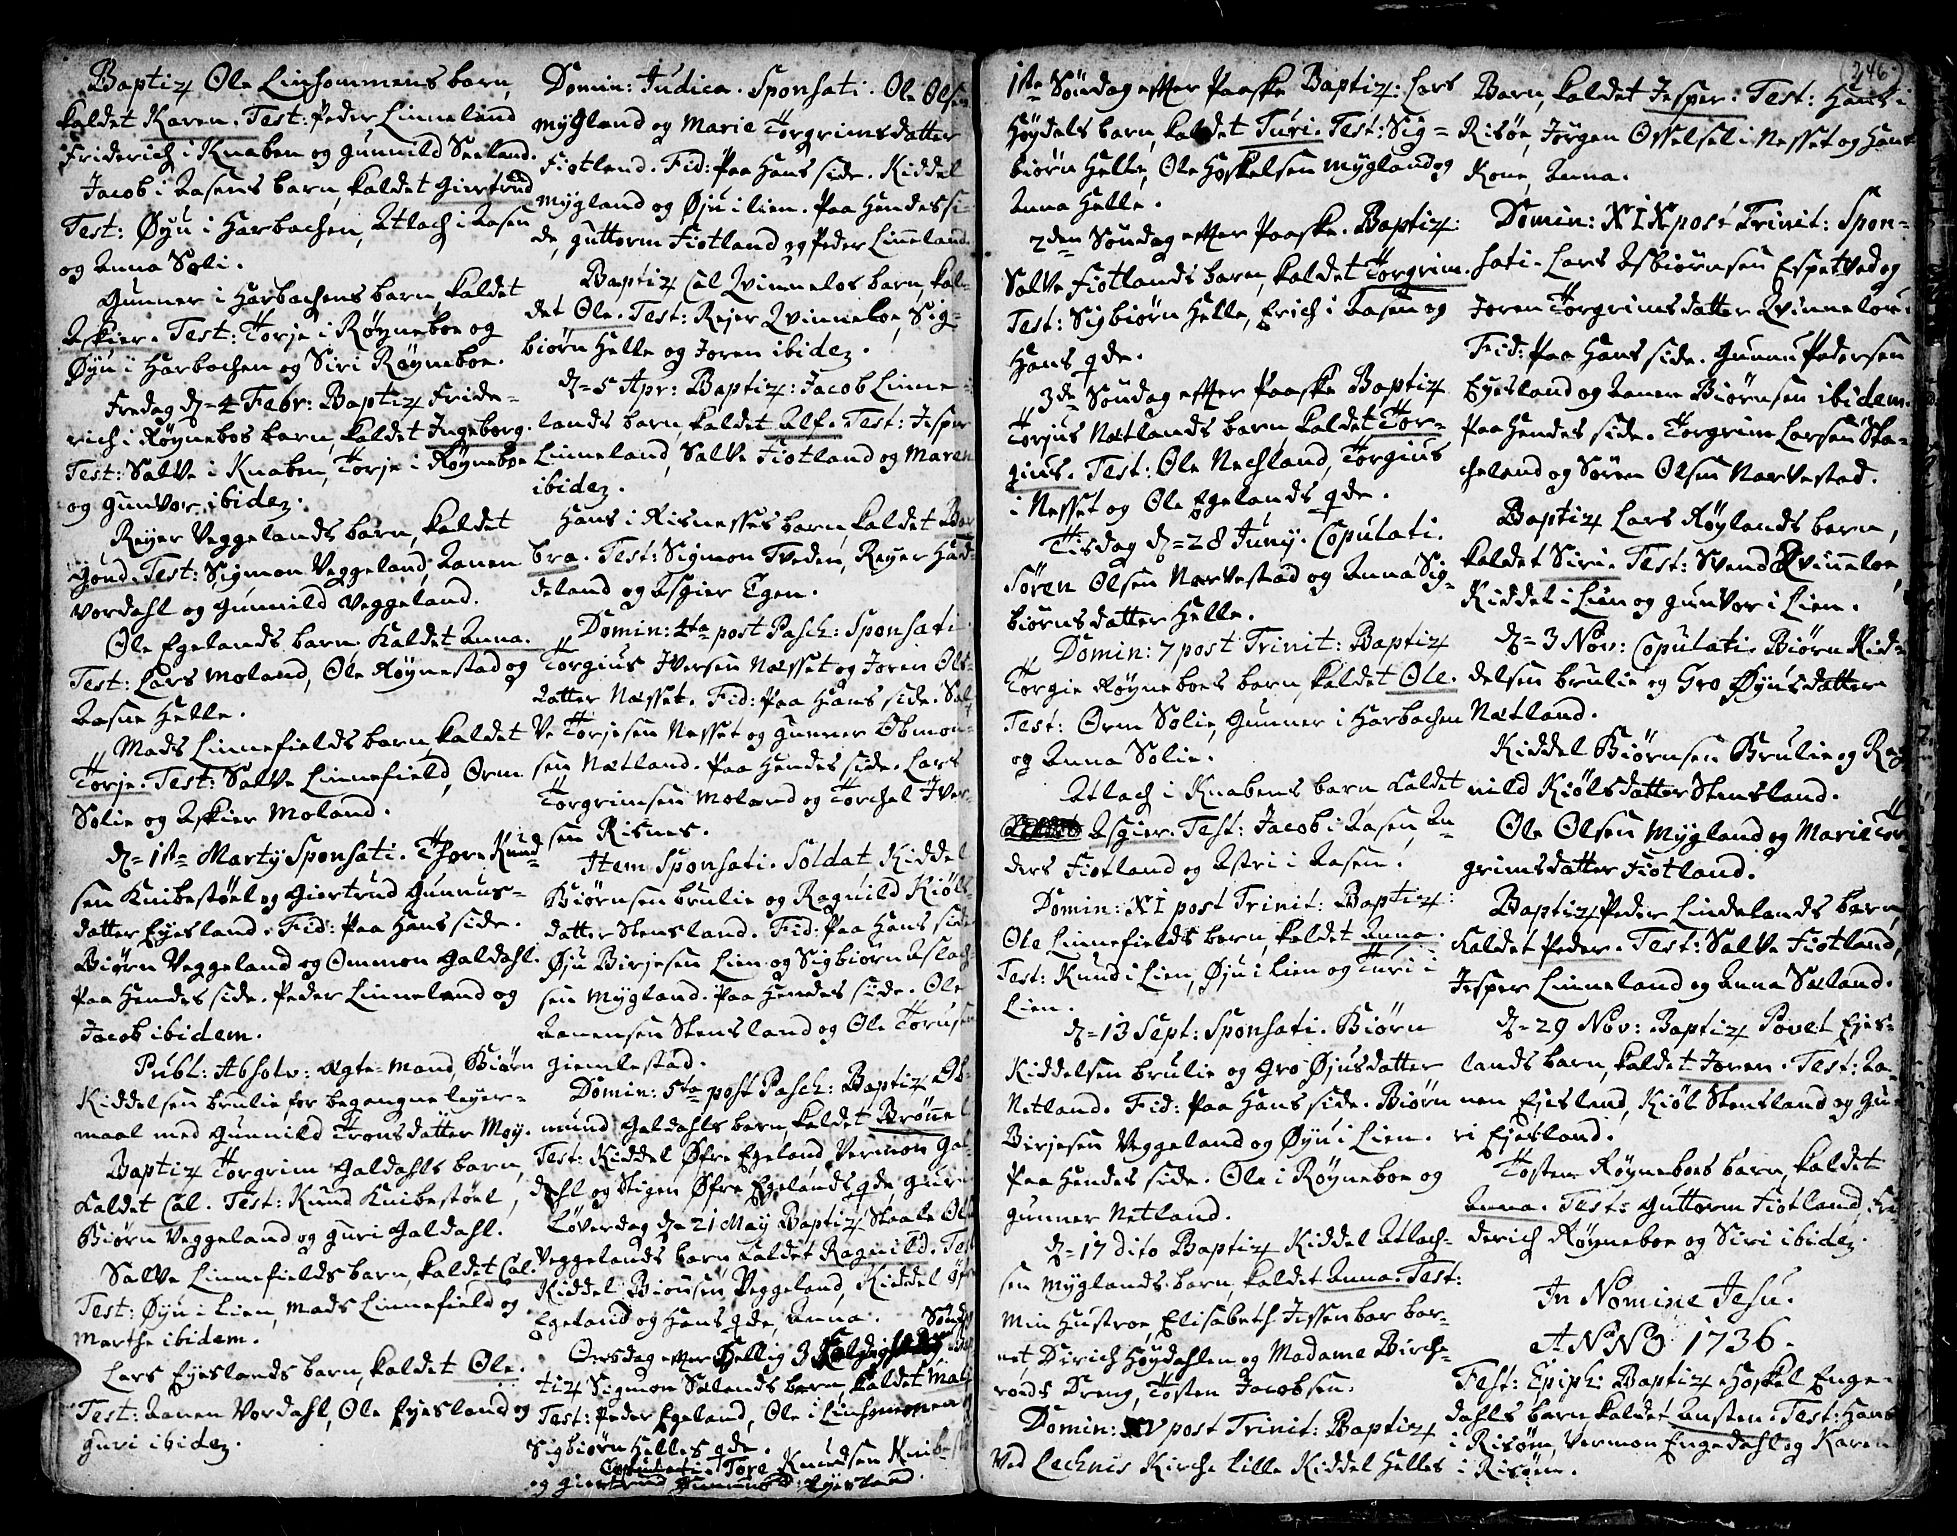 Baptiz Ole Linhommens barn,
kaldet Karen. Test: Peder Linneland
Friderich i Knaben og Gunnild Seeland.
Jacob i Aasens barn, kaldet Giertrud
Test: Øyu i Harbachen, Atlach i Aasen
og Anna Soli.
Gunner i Harbachens barn, kaldet
Askier. Test: Torje i Røyneboe og
Øyu i Harbachen og Siri Røyneboe.
Fredag d= 4 Febr: Baptiz Fride-
rich i Røynebos barn, kaldet Ingeborg.
Test: Salve i Knaben, Torje i Røyneboe
og Gunvor ibidez.
Reyer Veggelands barn, kaldet
Gond. Test: Sigmon Veggeland, Aanen
Vordahl og Gunnild Veggeland.
Ole Egelands barn kaldet Anna.
Test: Lars Moland, Ole Røynestad og
Aasne Helle.
Mads Linnefields barn, kaldet
Torje. Test: Salve Linnefield, Orm
Solie og Askier Moland.
d= 1ste Marty Sponsati. Thore Knud-
sen Knibestøel og Giertrud Gunnus-
datter Eyesland. Fid: Paa Hans side.
Biørn Veggeland og Ommon Galdahl.
Paa Hendes side. Peder Linneland og
Jacob ibidem.
Publ: Absolv: Ægte-Mand Biørn
Kiddelsen Brulie, for begangne leyer-
maal med Gunnild Tronsdatter Moy.
Baptiz Torgrim Galdahls barn,
kaldet Cal. Test: Knud Knibestøel,
Biørn Veggeland og Guri Galdahl.
Salve Linnefields barn, kaldet Cal.
Test: Øyu i Lien, Mads Linnefield og
Marthe ibidem.
Lars Eyeslands barn, kaldet Ole.
Test: Aanen Vordahl, Ole Eyesland og
Guri ibidez.
Domin: Judica. Sponsati. Ole Olsen
Mygland og Marie Torgrimsdatter
Fiotland. Fid: Paa Hans side. Kiddel
Mygland og Øju i Lien. Paa Hendes si-
de, Guttorm Fiotland og Peder Linneland.
Baptiz Cal Qvinnelos barn, kal-
det Ole. Test: Rejer Qvinneloe, Sig-
biørn Helle og Joren ibidez.
d= 5 Apr: Baptiz: Jacob Linne-
lands barn, kaldet Alf. Test: Jesper
Linneland, Salve Fiotland og Maren
ibidez.
Hans i Risnesses barn, kaldet Bar
bra. Test: Sigmon Tveden, Reyer Had-
deland og Asgier Egen.
Domin: 4ta post Pasch: Sponsati
Torgius Iversen Næsset og Joren Ols-
datter Næsset. Fid: Paa Hans side. Sal
ve Torjesen Nesset og Gunner Obmon-
sen Nætland. Paa Hendes side. Lars
Torgrimsen Moland og Torchel Iver-
sen Risnes.
Item Sponsati. Soldat, Kiddel
Biørnsen Brulie og Ragnild Kiøls
datter Stensland. Fid: Paa Hans side
Øju Birjesen Lien og Sigbiørn Aslach
sen Mygland. Paa Hendes side. Ole
Aanensen Stensland og Ole Torusen
Giemlestad.
Domin: 5ta post Pasch: Baptiz Ob-
mund Galdahls barn, kaldet Brønnel
Test: Kiddel Øfre Egeland, Vermon Gal
dahl og Stigen Øfre Egelands qde, Guri
Løverdag d= 21 May Baptiz Staale Ols
Veggelands barn kaldet Ragnild. Test
Kiddel Biønsen Veggeland, Kiddel Øfre
Egeland og Hans qde, Anna. Sønd
Onsdag efter Hellig 3
tiz Sigmon Sælands barn, kaldet
Test: Peder Egeland, Ole i Linhommen
Sigbiørn Helles qde.
Copulati. Tore Knudsen Knibest
og Giertrud Gunnusd: Eyesland
1ste Søndag efter Paaske Baptiz: Lars
Høydels barn, kaldet Turi. Test: Sig=
biørn Helle, Ole Hoskelsen Mygland og
Anna Helle.
2den Søndag efter Paaske. Baptiz:
Salve Fiotlands barn, kaldet Torgrim.
Test: Sigbiørn Helle, Erich i Aasen og
Hans qde.
3de Søndag efter Paaske Baptiz
Torjus Nætlands barn kaldet Tor-
gius. Test: Ole Nechland, Torgius
i Nesset og Ole Egelands qde.
Tisdag d= 28 Juny. Copulati.
Søren Olsen Narvestad og Anna Sig-
biørnsdatter Helle.
Domin: 7 post Trinit: Baptiz
Torgie Røyneboes barn, kaldet Ole.
Test: Orm Solie, Gunner i Harbachen
og Anna Solie.
Atlach i Knabens barn kaldet
Asgier. Test: Jacob i Aasen, An-
ders Fiotland og Astri i Aasen.
Domin: XI post Trinit: Baptiz:
Ole Linnefields barn, kaldet Anna.
Test: Knud i Lien, Øju i Lien og Turi i
Lien.
d= 13 Sept: Sponsati. Biørn
Kiddelsen Brulie og Gro Øjusdatter
Netland. Fid: Paa Hans side. Biørn
Birjesen Veggeland og Øyu i Lien.
Paa Hendes side. Ole i Røyneboe og
Gunner Netland.
d= 17 dito Baptiz Kiddel Atlach-
sen Myglands barn, kaldet Anna. Test:
Min Hustroe, Elisabeth Jessen bar bar-
net, Dirich Høydahlen og Madame Birche-
rods Dreng, Tosten Jacobsen.
Domin: XV post Trinit: Baptiz
Ved Lechnis Kirche Lille Kiddel Helles
246
Barn, kaldet Jesper. Test: Hans i
Risøe, Jørgen Osselsel i Nesset og Hans
Kone, Anna.
Domin: XIX post Trinit: Spon-
sati. Lars Asbiørnsen Espetved og
Joren Torgrimsdatter Qvinnelou.
Fid: Paa Hans side. Gunnu Pedersen
Eyesland og Aanen Biørnsen ibidem.
Paa Hendes side. Torgrim Larsen Sta-
cheland og Søren Olsen Narvestad.
Baptiz Lars Røylands barn,
kaldet Siri. Test: Svend Qvinneloe,
Kiddel i Lien og Gunvor i Lien.
d= 3 Nov: Copulati. Biørn Kid-
delsen Brulie og Gro Øyusdatter
Nætland.
Kiddel Biørnsen Brulie og Rag
nild Kiølsdatter Stensland.
Ole Olsen Mygland og Marie Tor
grimsdatter Fiotland.
Baptiz Peder Lindelands barn,
kaldet Peder. Test: Salve Fiotland,
Jesper Linneland og Anna Sæland.
d= 29 Nov: Baptiz Povel Ejes-
lands barn, kaldet Joren. Test: Aa-
nen Ejesland, Kiøl Stensland og Gu-
ri Ejesland.
Tosten Røyneboes barn, kaldet
Anna. Test: Guttorm Fiotland, Fri-
derich Røyneboe og Siri ibidez.
In Nomine Jesu.
ANNO 1736.
Fest: Epiph: Baptiz Hoskel Enge-
dahls barn, kaldet Austen. Test: Hans
i Risøm, Vermon Engedahl og Karen
i Risøm.